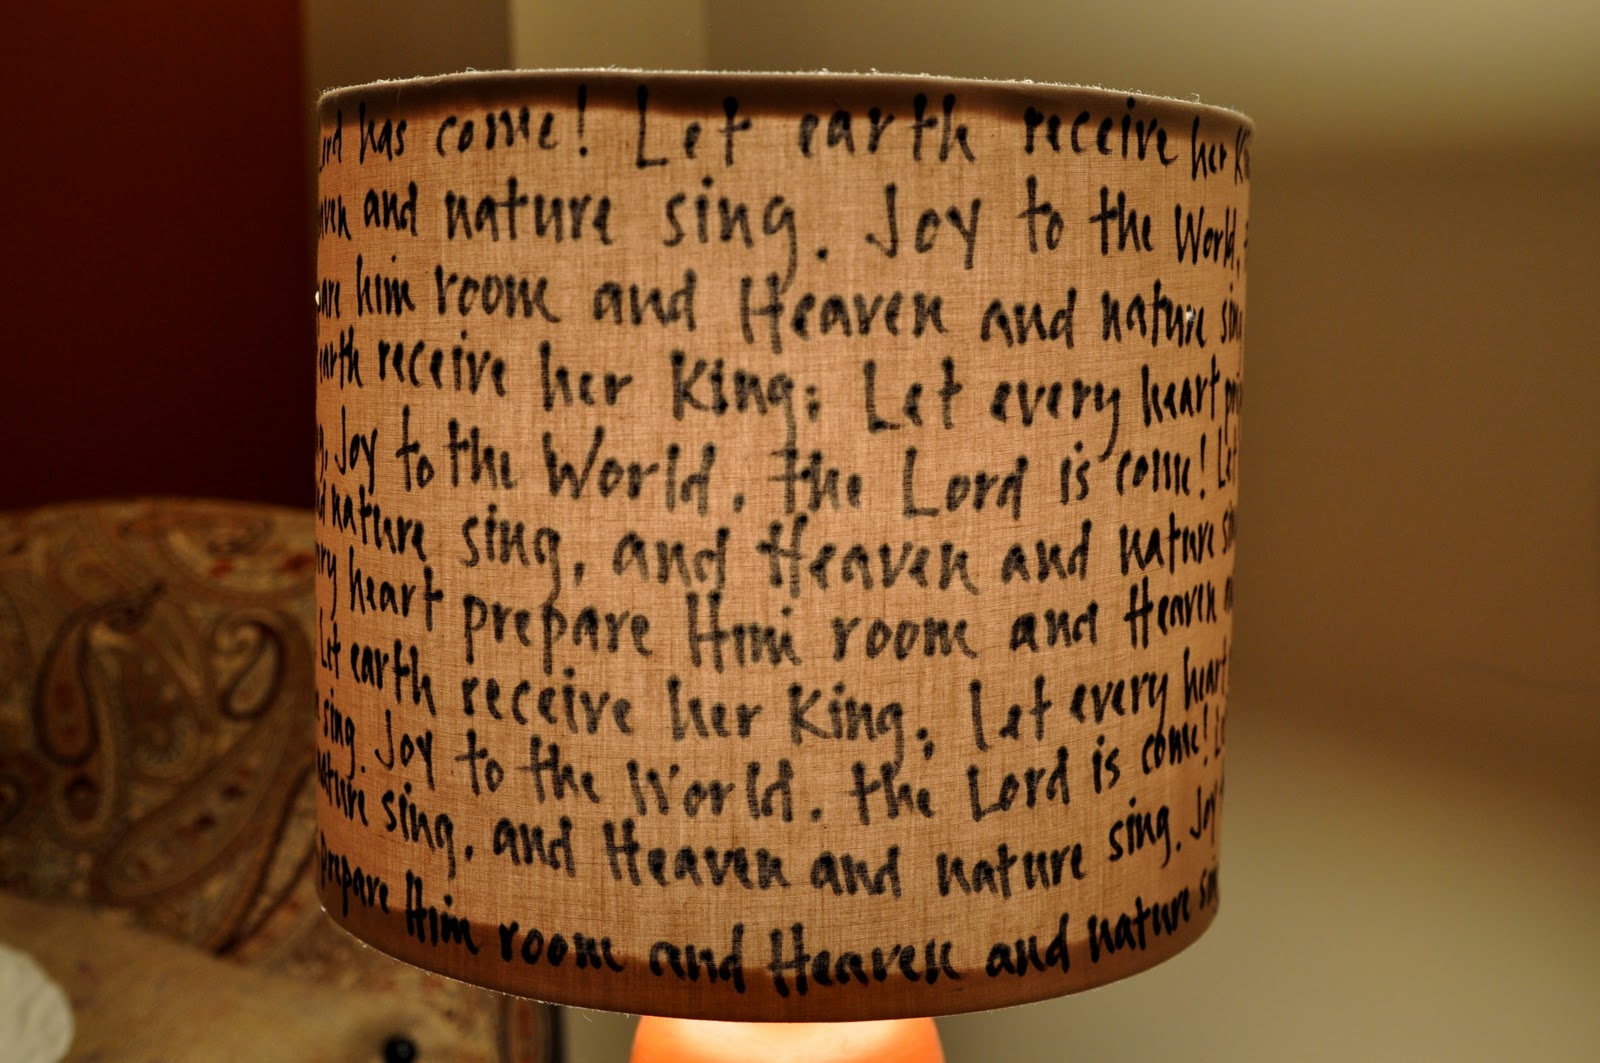 has come! Let earth receive her
and nature sing. Joy to the World.
him room and Heaven and nature sing
earth receive her King; Let every heart
Joy to the World, the Lord is come! Let
nature sing, and Heaven and nature
heart prepare Him room and Heaven
Let earth receive her King; Let every heart
sing. Joy to the World, the Lord is come!
nature sing, and Heaven and nature sing. Joy
prepare Him room and Heaven and nature